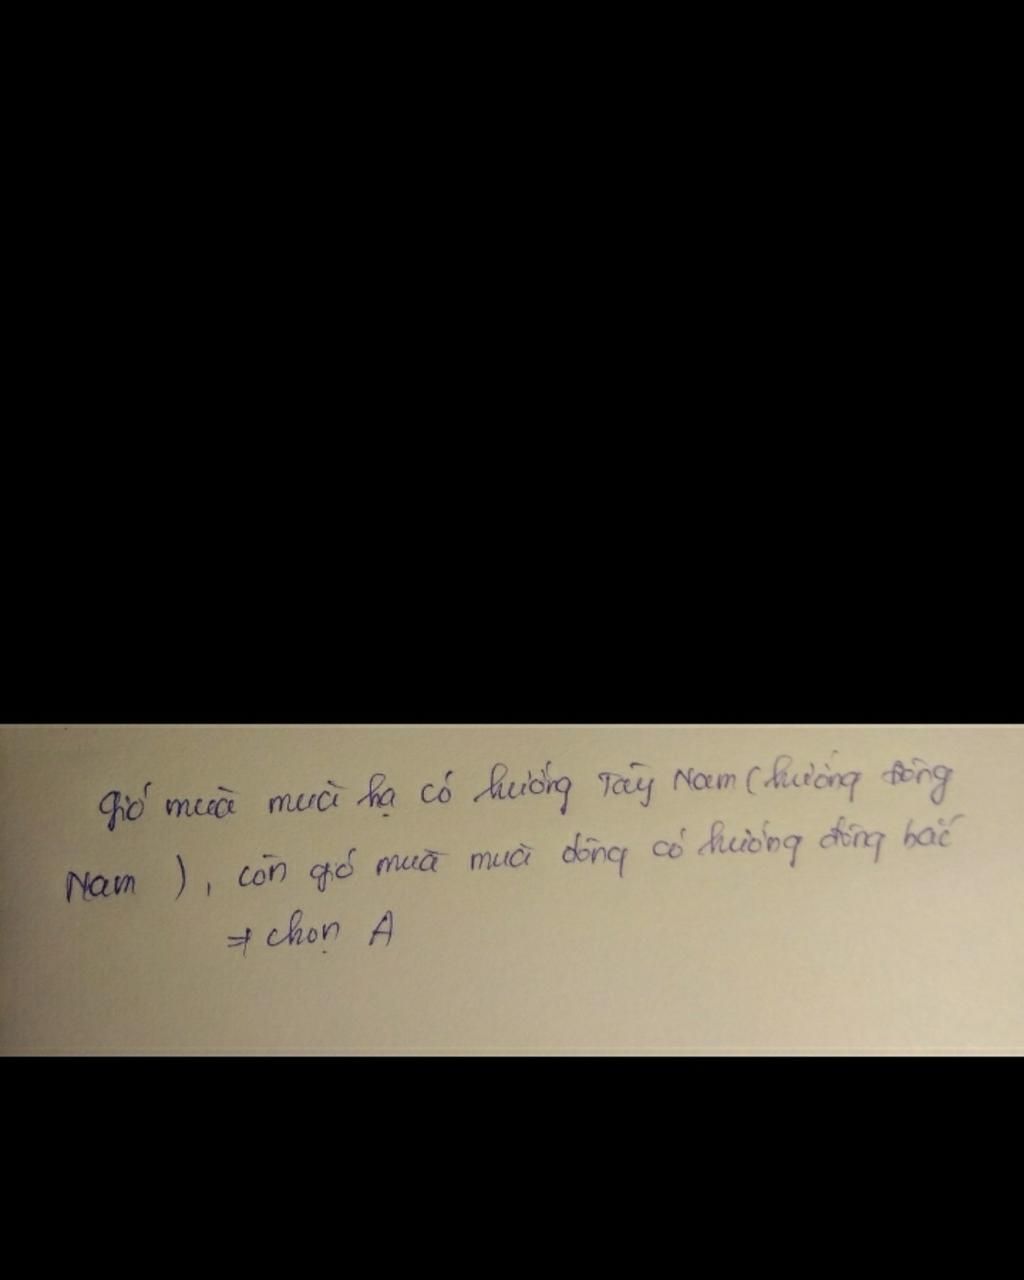 gió mùa mùa hạ có hướng Tây Nam (hướng đông
Nam), còn gió mùa mùa đông có hướng đông bắc
⇒ chọn A